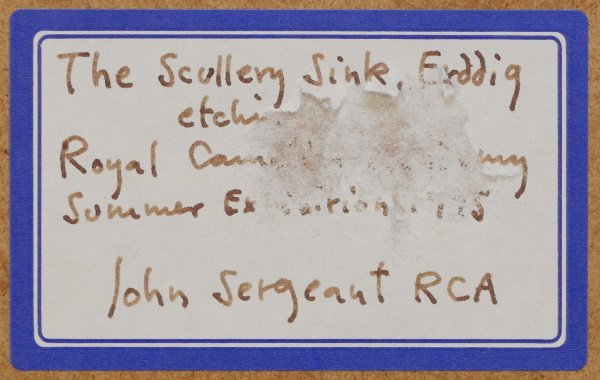 The Scullery Sink, Erddig
etching
Royal
Summer Exhibition
John Sergeant RCA